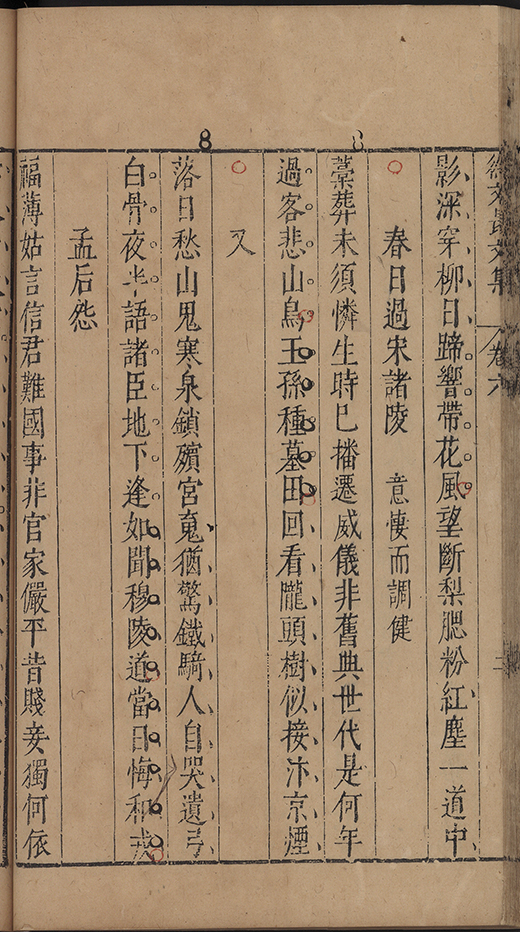 徐文長文集 卷六 三
影深穿柳日蹄響帶花風望斷梨腮粉紅塵一道中
春日過宋諸陵 意悽而調健
藁葬未須憐生時巳播遷威儀非舊典世代是何年
過客悲山鳥王孫種墓田回看隴頭樹似接汴京煙
又
落日愁山鬼寒泉鎖殯宮䰟猶驚鐵騎人自哭遺弓
白骨夜半語諸臣地下逢如聞穆陵道當日悔和戎
孟后怨
福薄姑言信君難國事非官家儼平昔賤妾獨何依
8 8